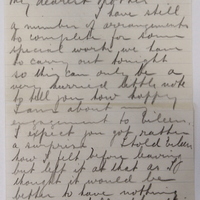 My dearest Mother
I have still
a number of arrangements
to complete for some
special work we have
to carry out tonight
so this can only be a
very hurried little note
to tell you how happy
I am about
engagement to Eileen.
I expect you got rather
a surprise. I told Eileen
how I felt before leaving
but left it at that as I
thought it would be
better to have nothing